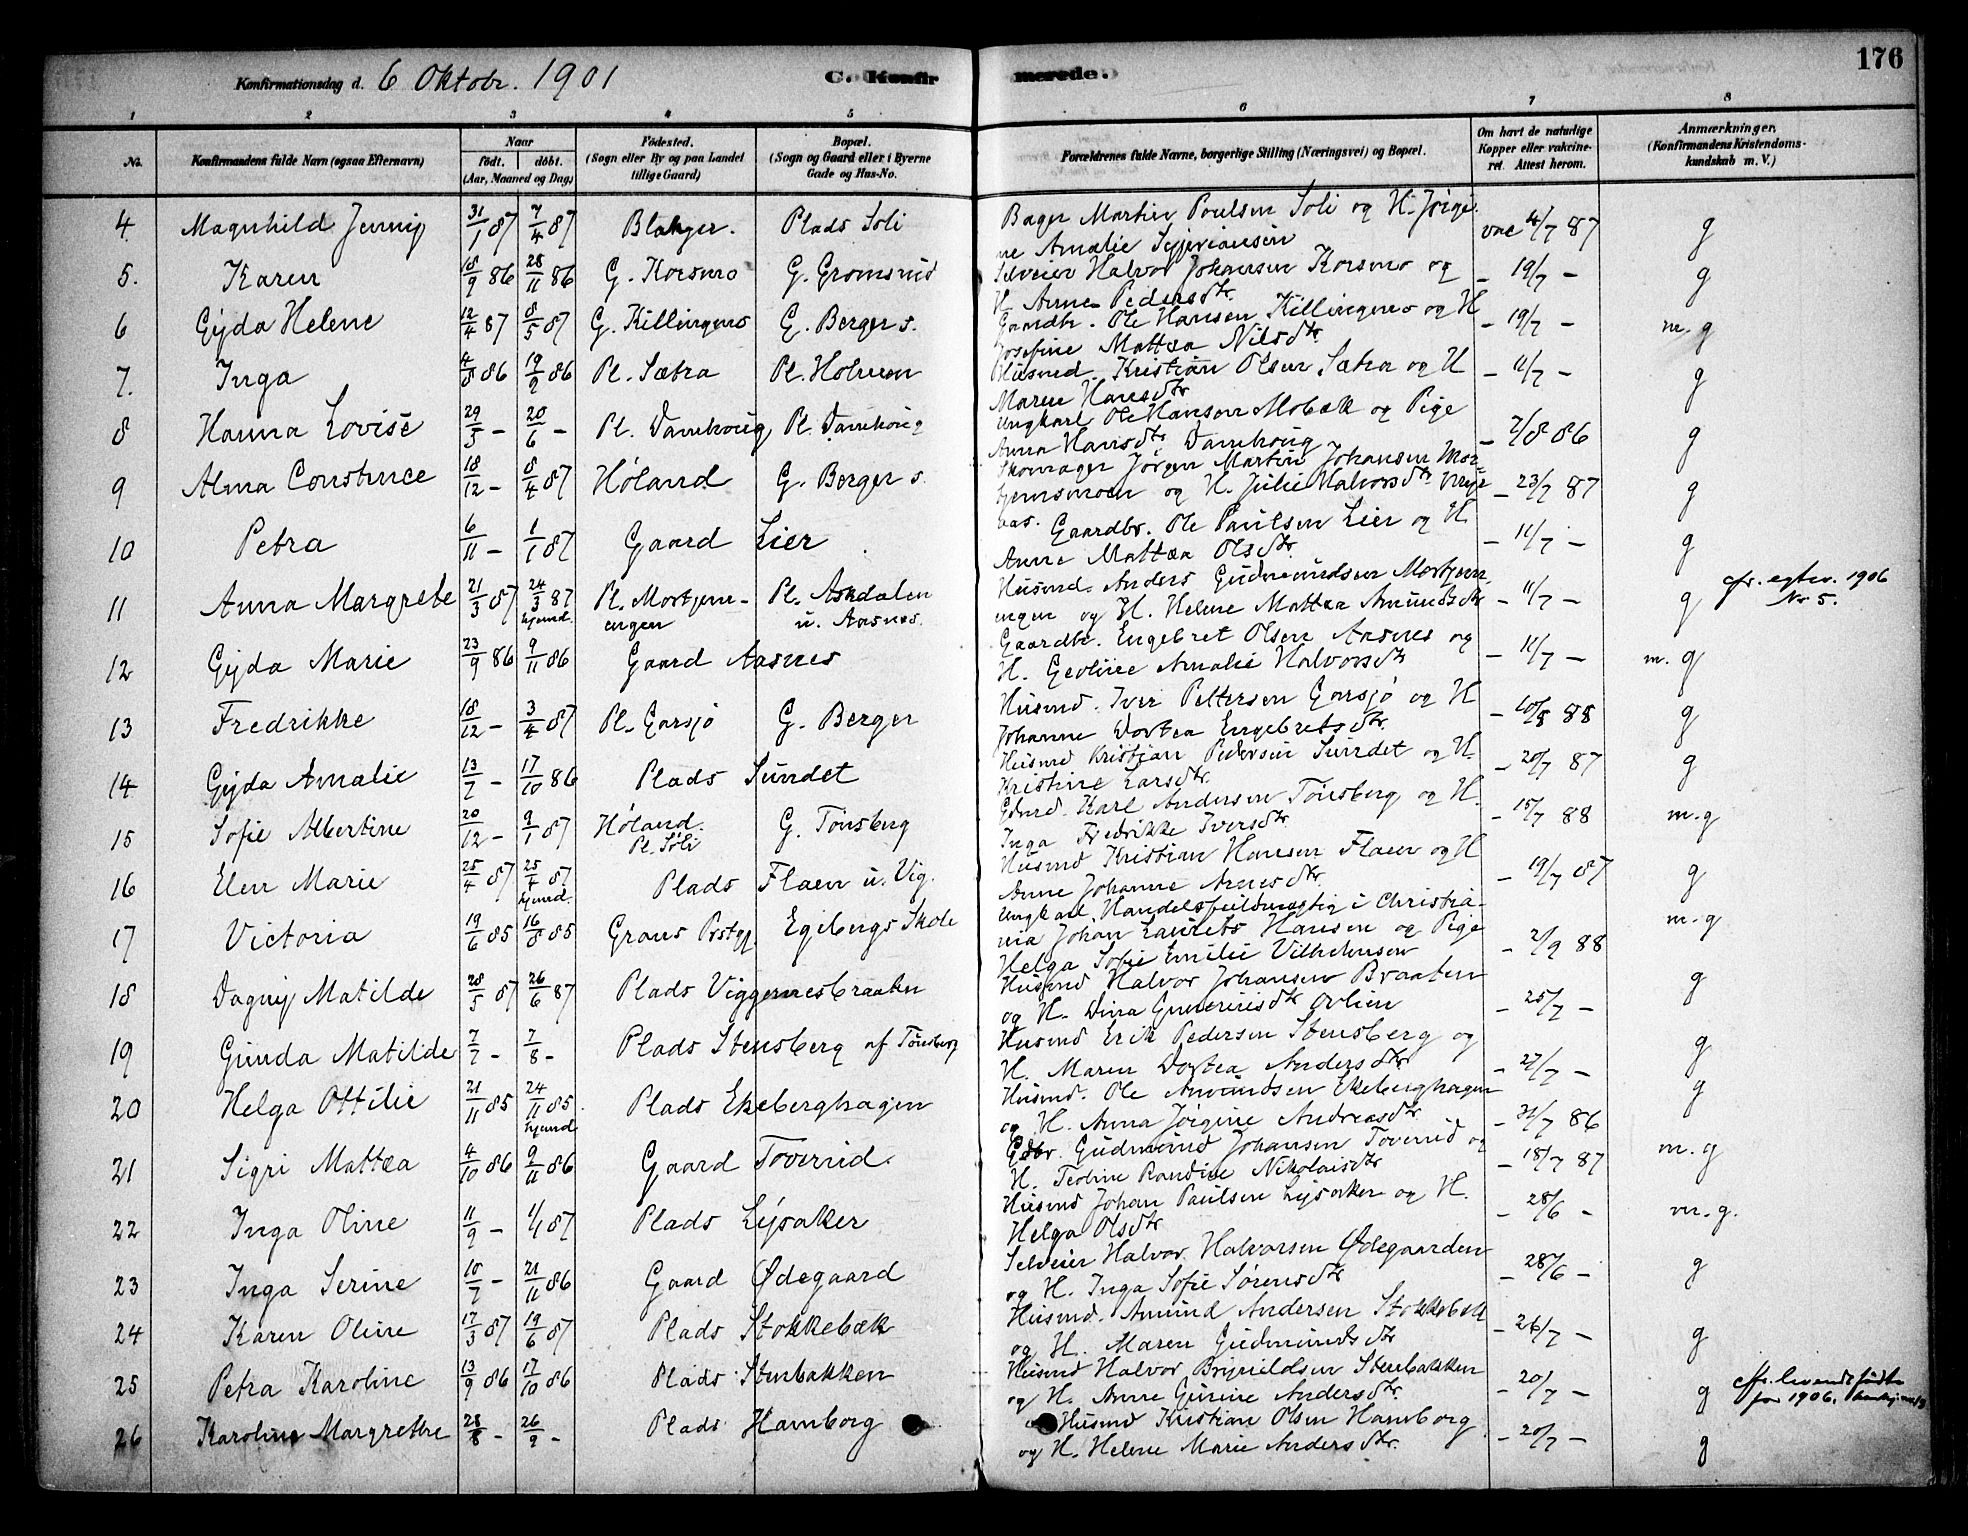 176
Konfirmationsdag d. 6 Oktobr. 1901
C. Konfirmerede.
1 2 3 4 5 6 7 8
No. Konfirmandens fulde Navn (ogsaa Efternavn) Naar født. døbt. (Aar, Maaned og Dag) Fødested. (Sogn eller By og paa Landet tillige Gaard) Bopæl. (Sogn og Gaard eller i Byerne Gade og Hus-No. Forældrenes fulde Navne, borgerlige Stilling (Næringsvei) og Bopæl. Om havt de naturlige Kopper eller vakcineret. Attest herom. Anmærkninger. (Konfirmandens Kristendomskundskab m. V.)
4. Magnhild Jenny 31/1 87 7/4 87 Plads Soli Bager Martin Poulsen Soli og H. Jørgi-
ne Amalie vac 4/7 87 g
5. Karen 18/9 86 28/11 86 G. Korsmo G. Gromsrud Selveier Halvor Johansen Korsmo og
H. Anne Pedersdtr. – 19/7 – g
6 Gyda Helene 12/4 87 8/5 87 G. Killingmo G. Berger s. Gaardbr. Ole Hansen Killingmo og H
Josefine Mattea Nilsdtr – 19/7 – m. g
7. Inga 4/8 86 19/9 86 Pl. Sætra Pl. Holmen Husmd. Kristian Olsen Sætra og H
Maren Hansdtr – 11/7 – g
8 Hanna Lovise 29/3 – 20/6 – Pl. Damhoug Pl. Damhoug Ungkarl Ole Hansen Mobæk og Pige
Anna Hansdtr Damhoug – 7/8 86 g
9 Alma Constance 18/12 – 8/4 87 Høland G. Berger s. Skomager Jørgen Martin Johansen Mor-
tjernsmoen og H. Julie Halvorsdtr – 23/7 87 g
10 Petra 6/11 – 1/1 87 Gaard Lier Gaardbr. Ole Paulsen Lier og H
Anne Mattea Olsdtr. – 11/7 – g
11 Anna Margrete 21/3 87 24/3 87 hjemd. Pl. Mortjern-
engen Pl. Askdalen
u. Aasnes. Husmd. Anders Gudmundsen Mortjern-
engen og H. Helene Mattea Amundsdtr – 11/7 – g cfr. egtev. 1906
Nr 5.
12 Gyda Marie 23/9 86 9/11 86 Gaard Aasnes Gaardbr. Engebret Olsen Aasnes og
H. Geoline Amalie Halvorsdtr – 11/7 – m. g
13 Fredrikke 18/12 – 3/4 87 Pl. Garsjø G. Berger Husmd. Iver Pettersen Garsjø og H
Johanne Dortea Engebretsdtr. – 10/8 88 g
14 Gyda Amalie 13/7 – 17/10 86 Plads Sundet Husmd Kristian Pedersen Sundet og H.
Kristine Larsdtr. – 20/7 87 g
15 Sofie Albertine 20/12 – 9/1 87 Høland.
Pl. Soli G. Tønsberg Gdmd. Karl Andersen Tønsberg og H.
Inga Fredrikke Iversdtr. – 15/7 88 m. g
16 Elen Marie 25/4 87 25/4 87 hjemd. Plads Flaen u. Vig. Husmd Kristian Hansen Flaen og H
Anne Johanne Arnesdtr. – 19/7 87 g
17 Victoria 19/6 85 16/8 85 Grans Prstgj. Egebergs Skole Ungkarl, Handelsfuldmægtig i Christia-
nia Johan Laurits Hansen og Pige
Helga Sofie Emilie Vilhelmsen – 2/9 88 m. g
18 Dagny Matilde 28/5 87 26/6 87 Plads Viggernesbraaten Husmd Halvor Johansen Braaten
og H. Dina Guneriusdtr – 25/7 – g
19 Gunda Matilde 7/7 – 7/8 – Plads Stensberg af Tønsberg Husmd Erik Pedersen Stensberg og
H. Maren Dortea Andersdtr – 27/7 – g
20 Helga Ottilie 21/11 85 24/11 85. hjemd Plads Ekeberghagen Husmd. Ole Amundsen Ekeberghagen
og H. Anna Jørgine Andreasdtr. – 31/7 86 g
21 Sigri Mattea 4/10 86 9/11 86 Gaard Toverud. Gdbr. Gudmund Johansen Toverud og
H. Teoline Randine Nikolaisdtr – 18/7 87 m. g
22 Inga Oline 11/9 – 1/1 87 Plads Lysaker Husmd Johan Paulsen Lysaker og H.
Helga Olsdtr – 28/6 – m. g.
23 Inga Serine 10/7 – 21/11 86 Gaard Ødegaard Selveier Halvor Halvorsen Ødegaarden
og H. Inga Sofie Sørensdtr – 28/6 – g
24 Karen Oline 17/3 87 19/6 87 Plads Stokkebæk Husmd. Amund Andersen Stokkebæk
og H. Maren Gudmundsdtr – 26/7 – g
25 Petra Karoline 13/9 86 17/10 86 Plads Stenbakken Husmd Halvor Brynildsen Stenbakken
og H. Anne Gurine Andersdtr. – 20/7 – g cfr. levende fødte
for 1906.
26 Karoline Margrethe 28/8 – 26/9 – Plads Hamborg Husmd Kristian Olsen Hamborg
og H. Helene Marie Andersdtr. – 20/7 – g